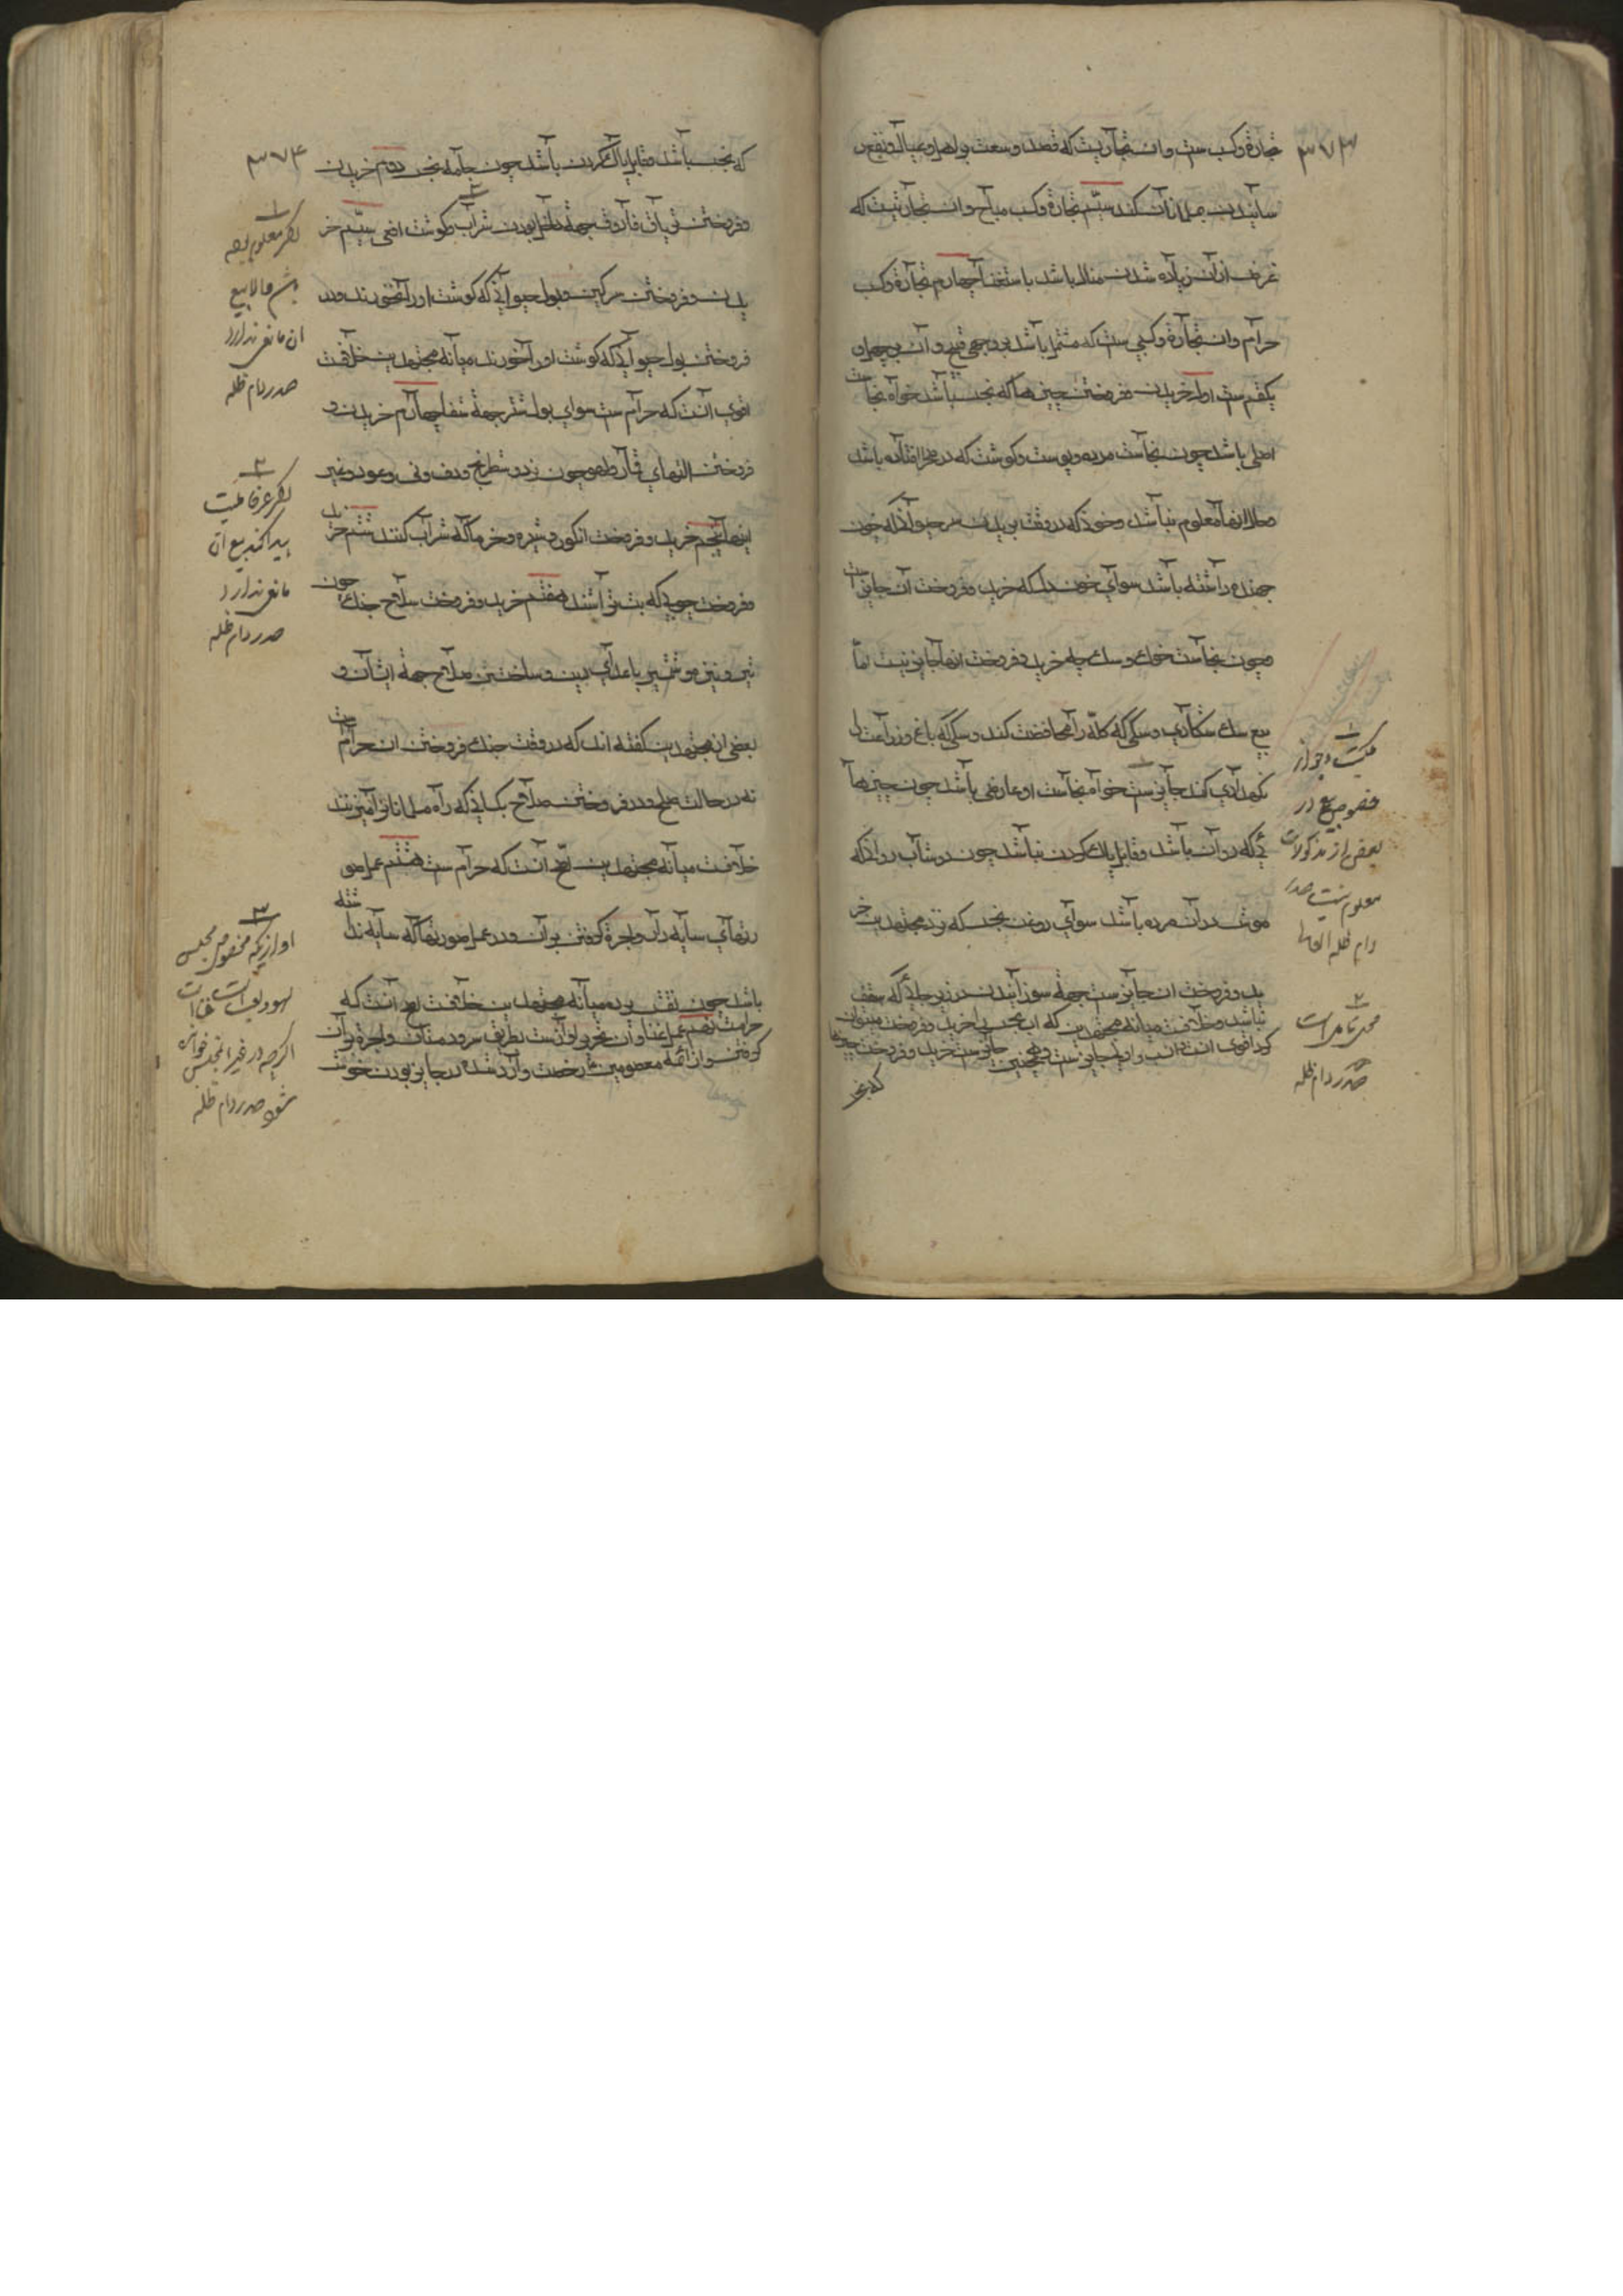 ۳۷۳
تجارة وكسب سنت و ان تجارتيست كه قصد وسعت بر اهل و عيال و نفع ر
سانيدن بمسلمانان كند سيّم تجارة و كسب مباح و ان تجارتيست كه
غرض از آن زياده شدن مال باشد با استغنا چهارم تجارة و كسب
حرام و ان تجارة و كسبى ست كه مشتمل باشد بر وجهى قبيح و آن بر چهل و
يكقسم ست اول خريدن و فروختن چيزها كه نجس باشد خواه نجاست
اصلى باشد چون نجاست مرده و پوست و گوشت كه در صحرا افتاده باشد
و حال انها معلوم نباشد و خونى كه در وقت بريدن سر حيوانى كه خون
جهنده داشته باشد سواى خون دل كه خريد و فروخت آن جايز است
و چون نجاست خوك و سك چه خريد و فروخت انها جايز نيست اما
بيع سك شكارى و سكى كه كله را محافظت كند و سكى كه باغ و زراعت را
نكهدارى كند جايز ست خواه نجاست او عارضى باشد چون چيزها
ئى كه روان باشد و قابل پاك كردن نباشد چون دوشاب روانى كه
موش در آن مرده باشد سواى روغن نجس كه نزد مجتهدين خر
يد و فروخت ان جايز ست جهة سوزانيدن در زير جائى كه سقف
نباشد و خلافست ميانه مجتهدين كه اب نجس را خريد و فروخت ميتوان
كرد اقوى انست جايز ست و همچنين جايز ست خريد و فروخت چيزها
كه نجس
۱
ملكيت و جواز
خصوص بيع در
بعض از مذكورات
معلوم نيست صدر
دام ظله العالى
۲
محل تامل است
صدر دام ظله
۳۷۴
كه نجس باشد و قابل پاك كردن باشد چون جامه نجس دويم خريدن
و فروختن ترياق فاروق جهة داخل بودن شراب و گوشت افعى سيّم خر
يدن و فروختن سركين و بول حيوانى كه گوشت او را نخورند و در
فروختن بول حيوانى كه گوشت او را خورند ميانه مجتهدين خلافست
اقوى آنست كه حرام ست سواى بول شتر جهة شفا چهارم خريدن و
فروختن التهاى قمار و لهو چون نرد و شطرنج و دف و نى و عود و غير
اينها پنجم خريد و فروخت انكور و شيره و خرما كه شراب كنند ششم خريد
و فروخت چوبى كه بت تراشند هفتم خريد و فروخت سلاح جنك چون
تير و نيزه و شمشير با اعداى دين و ساختن سلاح جهة ايشان و
بعضى از مجتهدين كفته اند كه در وقت جنك فروختن ان حرام ست
نه در حالت صلح و در فروختن سلاح بكسانى كه راه مسلمانان را ميزنند
خلافست ميانه مجتهدين اصح آنست كه حرام ست هشتم عمل صو
رتهاى سايه دار و اجرة كرفتن بر آن و در عمل صورتها كه سايه نداشته
باشد چون نقش پرده ميانه مجتهدين خلافست اصح آنست كه
حرامست نهم عمل غنا و ان تحرير آواز ست بطريق سرود مستان و اجرة بر آن
كرفتن و از ائمه معصومين رخصت وارد شده در جايز بودن خوش
۱
اگر معلوم ليصه
باشم حالا بيع
ان مانعى ندارد
صدر دام ظله
۲
اگر عرفا ماليت
پيدا كند بيع ان
مانعى ندارد
صدر دام ظله
۳
اوازيكه مخصوص مجلس
لهو و لعب است غنا است
اگرچه در غير انمجلس خوانده
شود صدر دام ظله